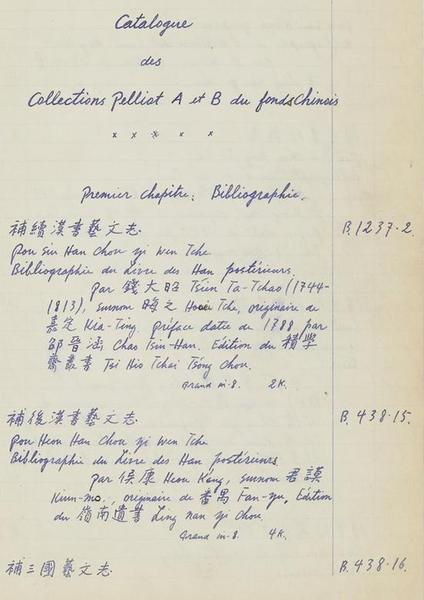 Catalogue
des
Collections Pelliot A et B du fonds Chinois
x x x x x
Premier chapitre: Bibliographie.
補續漢書藝文志. B.1237-2.
Pou Siu Han Chou yi wen Tche
Bibliographie du Livre des Han postérieurs
par 錢大昭 Tsien Ta-Tchao (1744-
1813), surnom 晦之 Houei Tche, originaire de
嘉定 Kia-Ting. préface datée de 1788 par
邵晉涵 Chao Tsin-Han. Edition du 積學
齋叢書 Tsi Hio Tchai Tsong Chou.
Grand in-8. 2K.
補後漢書藝文志. B.438-15.
Pou Heou Han Chou yi wen Tche
Bibliographie du Livre des Han postérieurs
par 侯康 Heou K'ang, surnom 君謨
Kiun-mo, originaire de 番禺 Fan-yu, Edition
du 嶺南遺書 Ling nan yi Chou.
Grand in-8. 4K.
補三國藝文志. B.438-16.